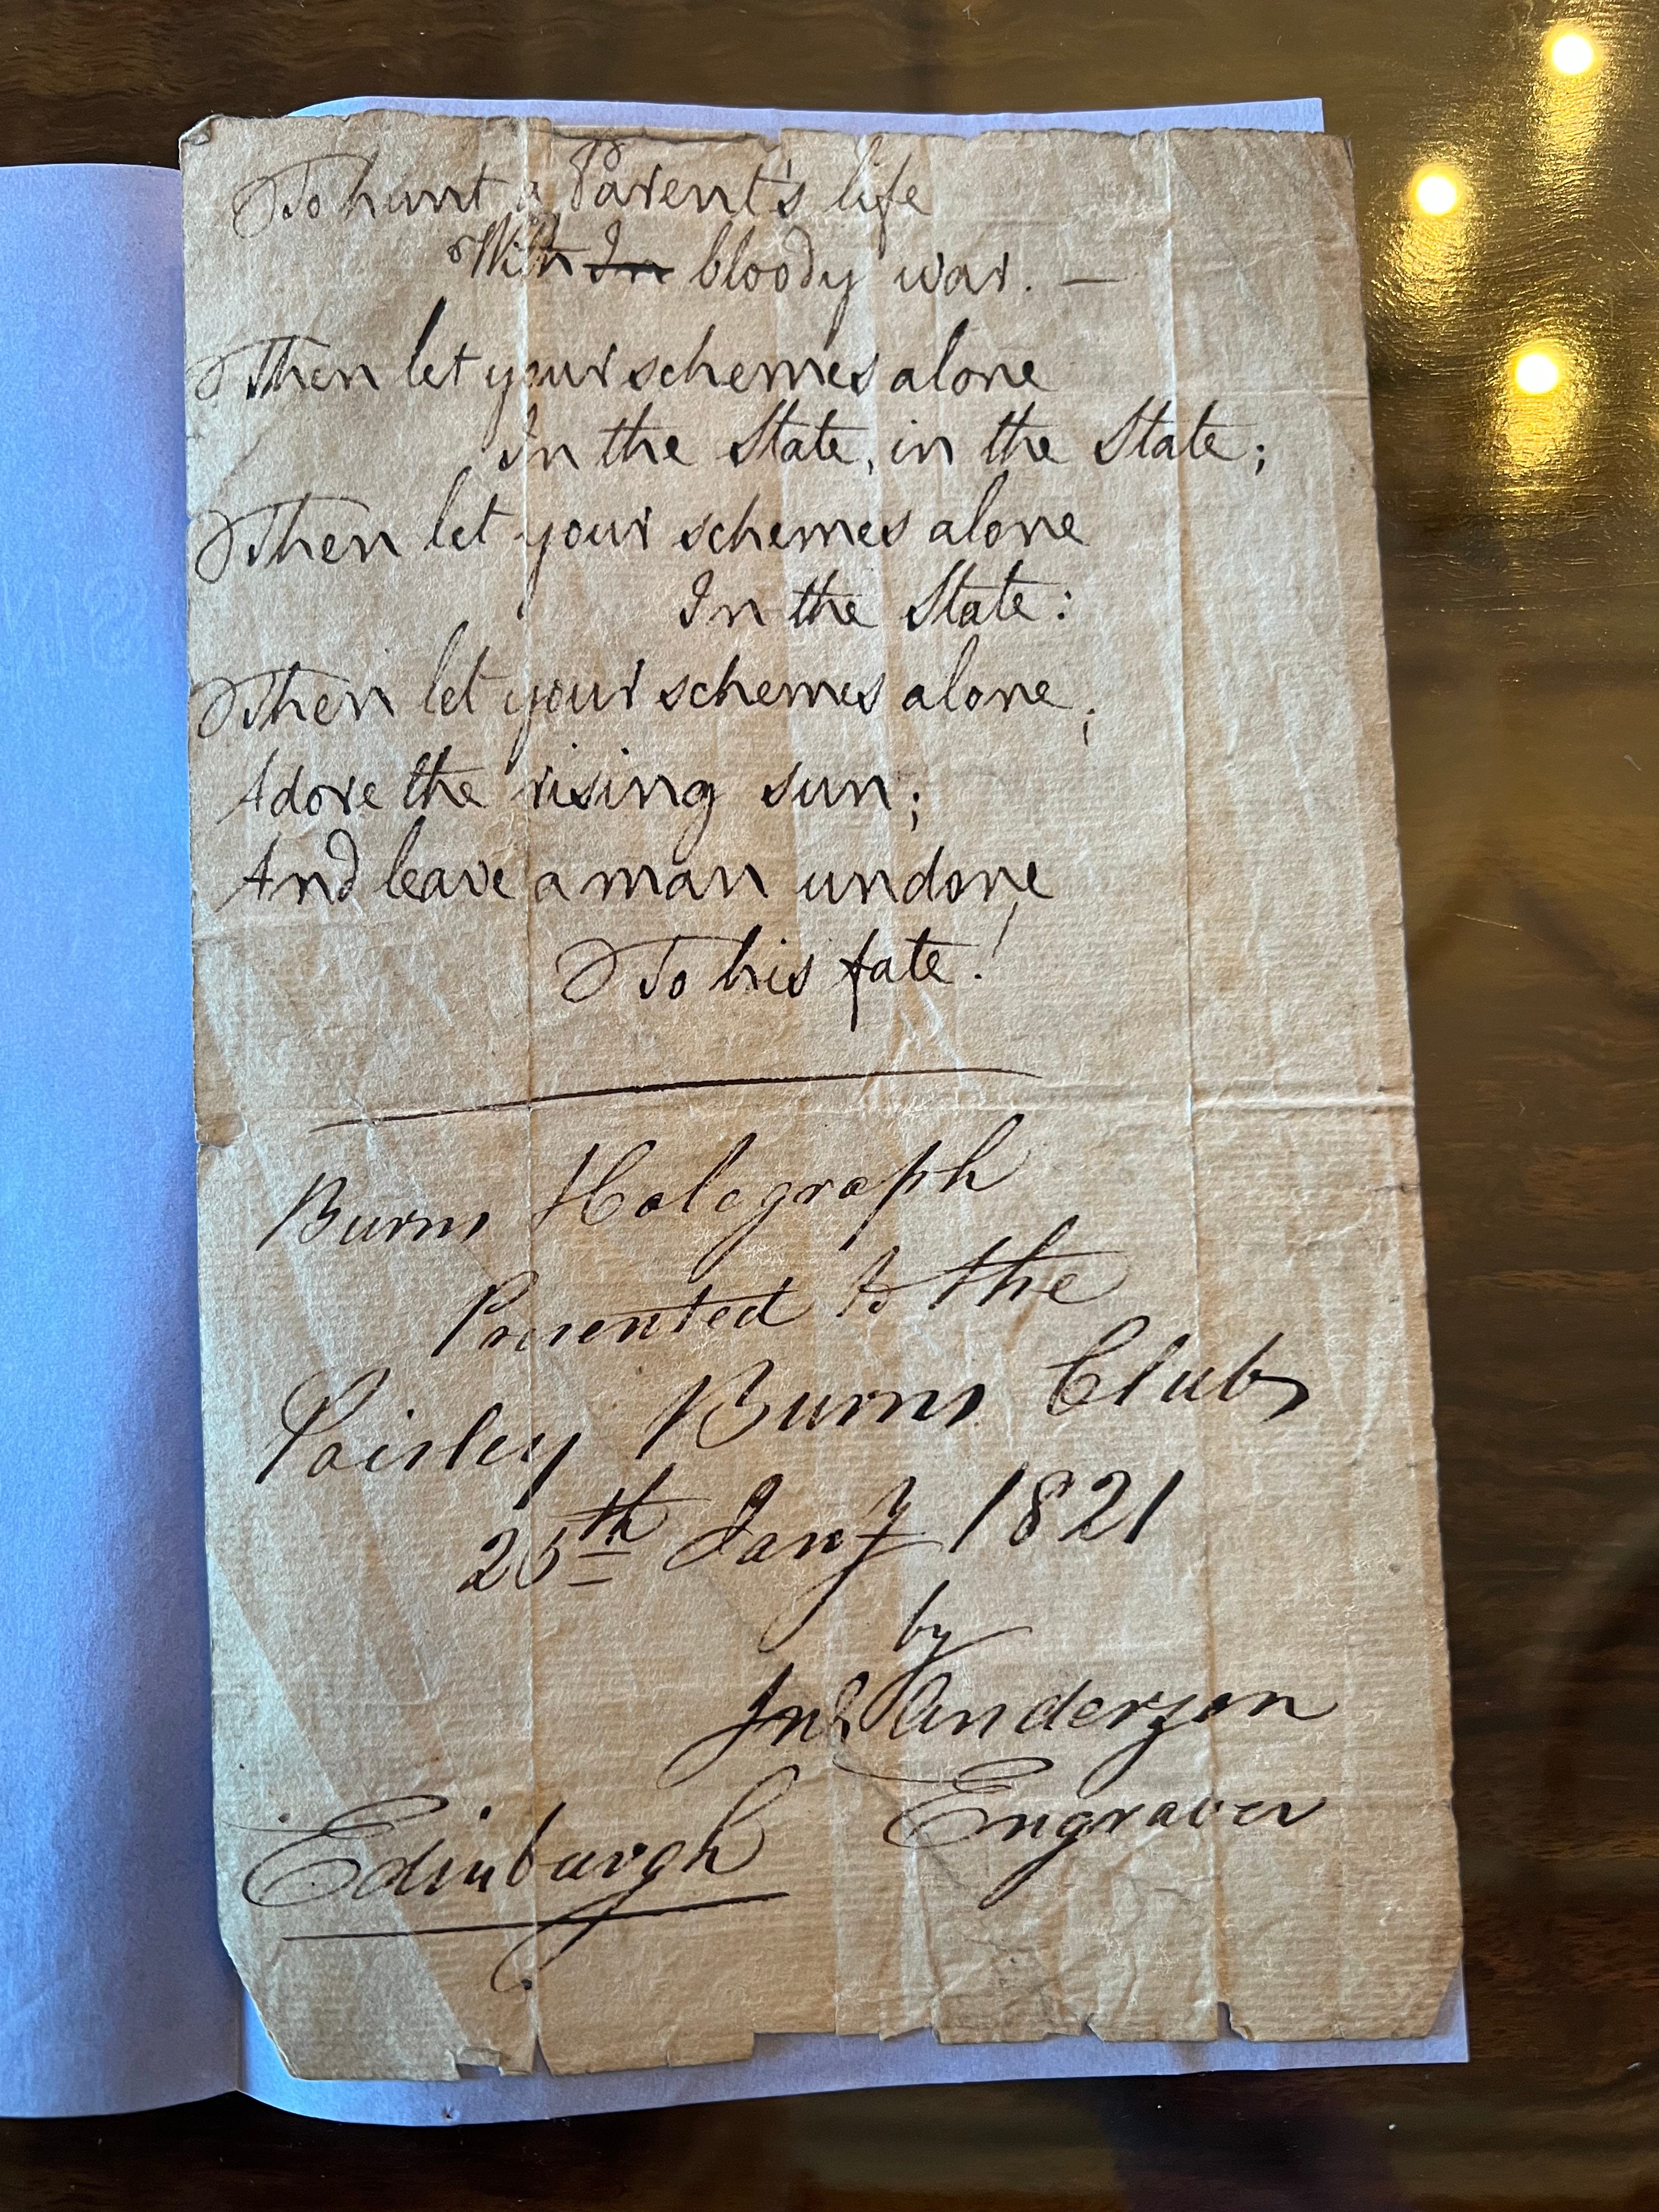 To hunt a Parent's life
With In bloody war. —
Then let your schemes alone
In the State, in the State;
Then let your schemes alone
In the State:
Then let your schemes alone,
Adore the rising sun;
And leave a man undone
To his fate!
Burns Holograph
Presented to the
Paisley Burns Club
25th Jany 1821
by
Jno Anderson
Engraver
Edinburgh